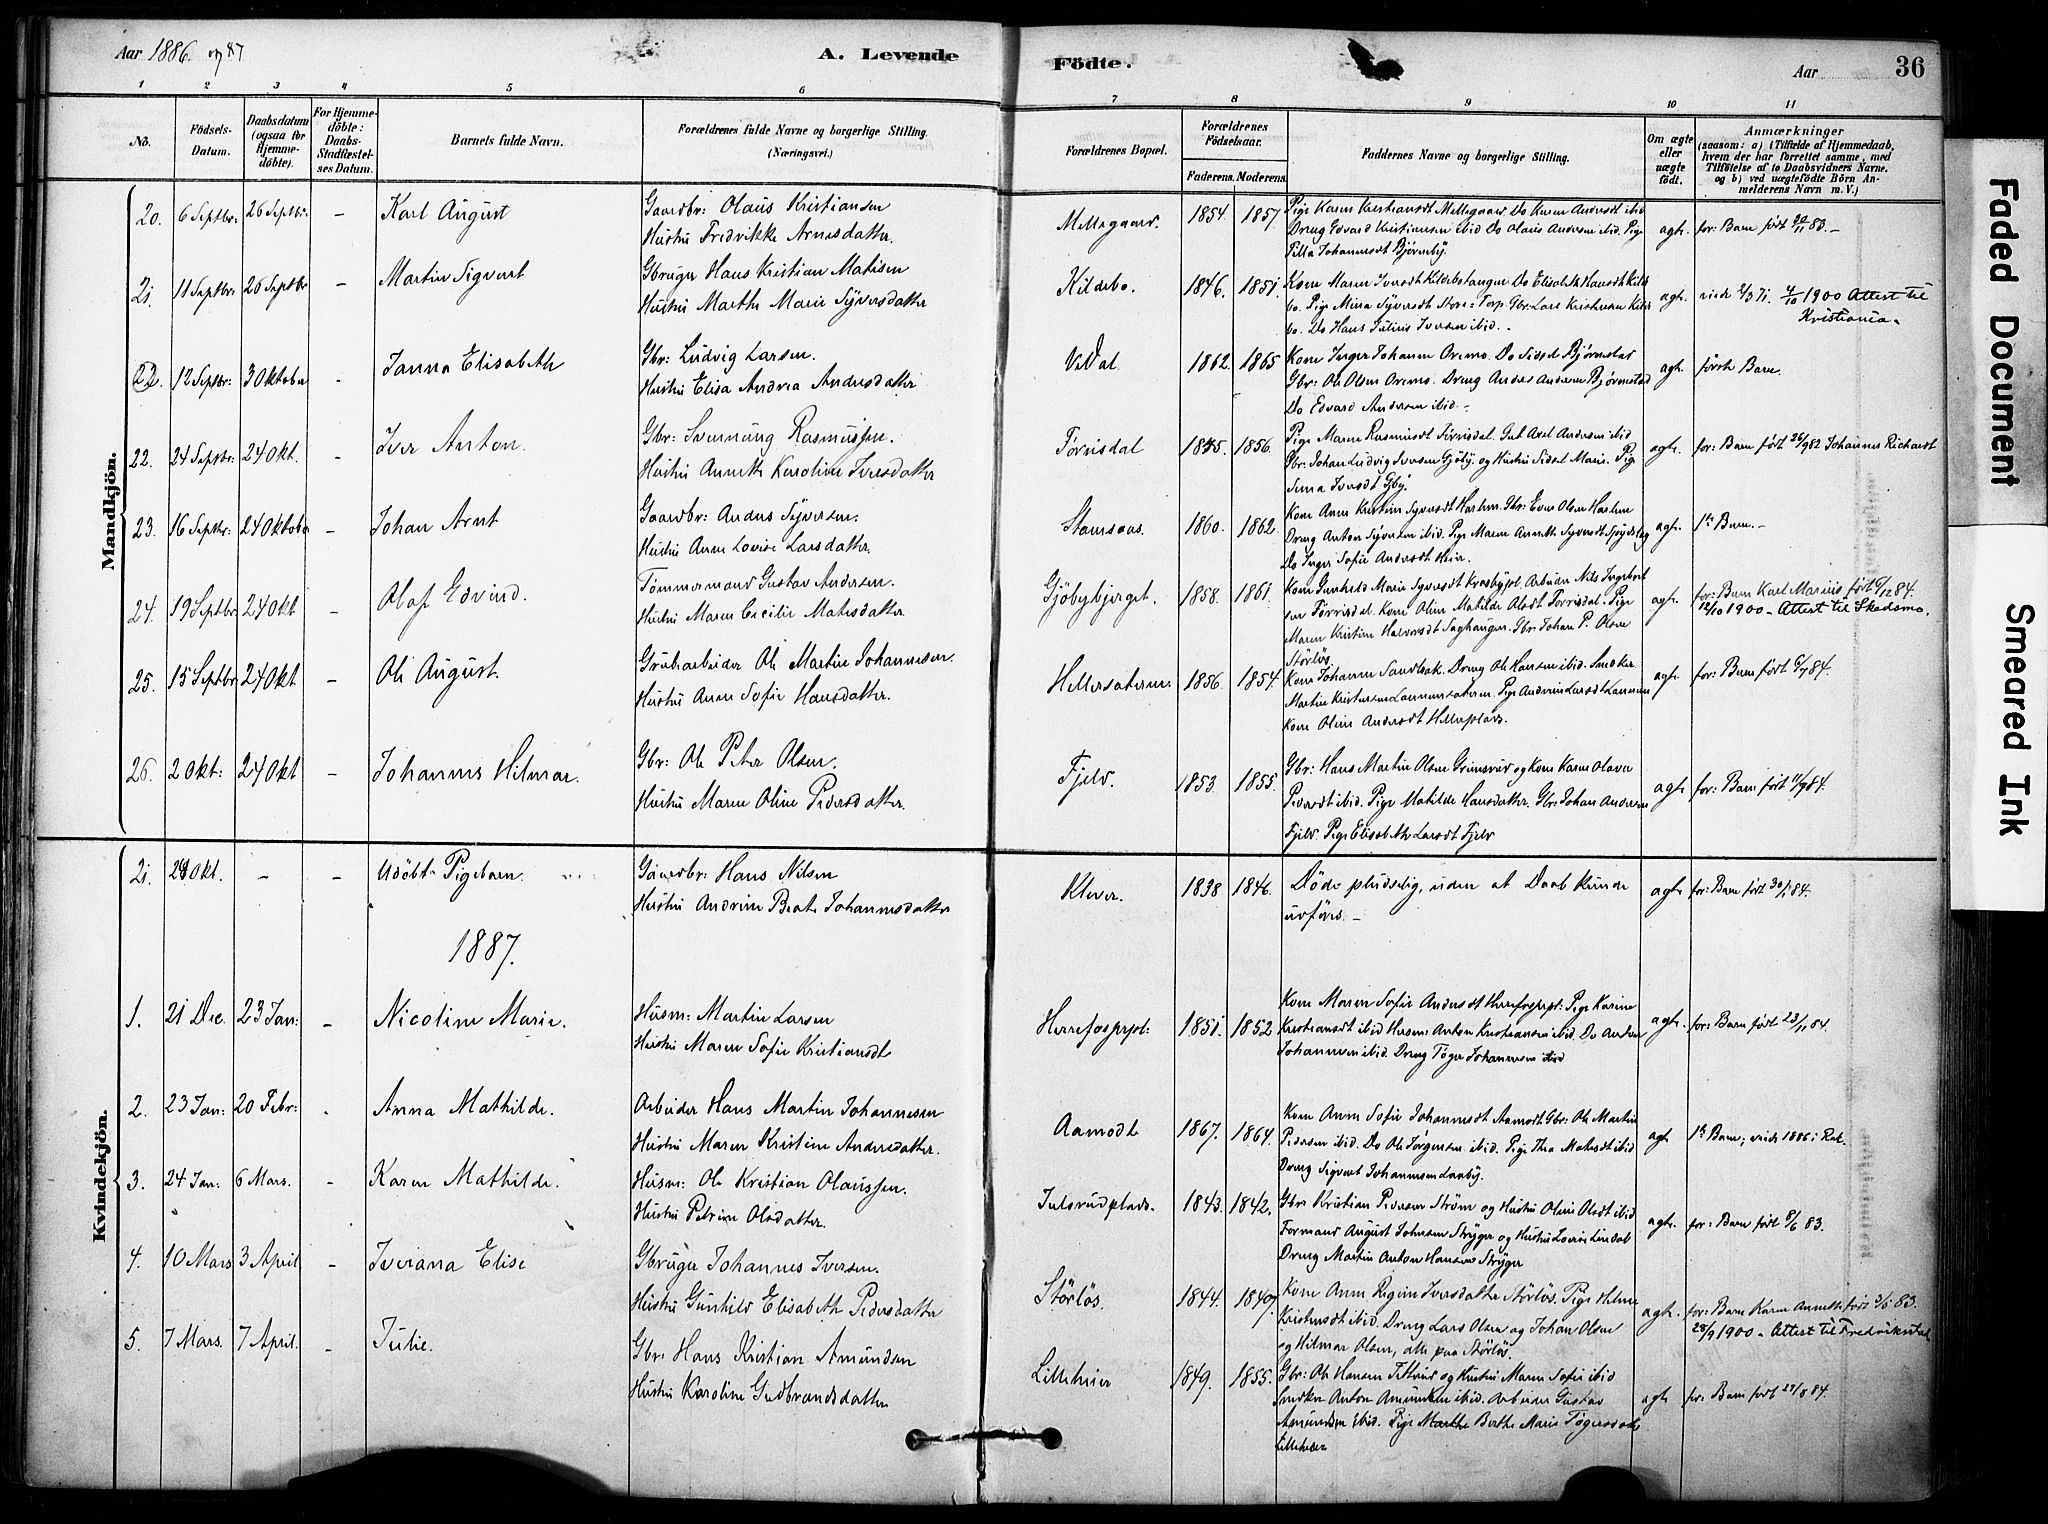 Aar 1886 og 87
A. Levende
Födte.
Aar
36
1 2 3 4 5 6 7 8 9 10 11
No.
Födsels-Datum.
Daabsdatum (ogsaa for Hjemme-döbte).
For Hjemme-döbte: Daabs-Stadfæstel-ses Datum.
Barnets fulde Navn.
Forældrenes fulde Navne og borgerlige Stilling. (Næringsvei.)
Forældrenes Bopæl.
Forældrenes Födselsaar.
Faderens. Moderens.
Faddernes Navne og borgerlige Stilling.
Om ægte eller uægte födt.
Anmærkninger (saasom: a) i Tilfælde af Hjemmedaab, hvem der har forrettet samme, med Tilföielse af to Daabsvidners Navne. og b) ved uægtefödte Börn An-melderens Navn m. V.)
Mandkjön.
20. 6 Septbr: 26 Septbr: - Karl August Gaardbr: Olaus Kristiansen
Hustru Fredrikke Arnesdatter.
Mellegaard. 1854. 1857. Pige Karen Kristiansdt Mellegaard Do Karen Andersdt ibid
Dreng Edvard Kristiansen ibid Do Olaus Andersen ibid. Pige
Tilla Johannesdt Bjørneby.
agt. for: Barn født 30/11 83. -
21. 11 Septbr: 26 Septbr - Martin Sigvart Gbruger Hans Kristian Matisen
Hustru Marthe Marie Syversdatter
Kildebo. 1846. 1851. Kone Maren Iversdt Kildebo Do Elisabeth Hansdt Kilde
bo. Pige Mina Syversdt Store-Torp Gbr: Lars Kristensen Kilde
bo. Do Hans Julius Iversen ibid. -
agt. viede 2/3 71. 4/10 1900 Attest til
Kristiania.
22. 12 Septbr: 3 Oktober - Janna Elisabeth Gbr: Ludvig Larsen.
Hustru Elisa Andrea Andersdatter
1862. 1865 Kone Inger Johanne Oremo. Do Sidsel Bjørnstad
Gbr: Ole Olsen Oremo. Dreng Anders Andersen Bjørnstad
Do Edvard Andersen ibid. -
agt. første Barn.
22. 24 Septbr: 24 Okt. - Iver Anton. Gbr: Svennung Rasmussen.
Hustru Annette Karoline Iversdatter
Torrisdal 1855. 1856. Pige Maren Rasmusdt Torrisdal. Gut Axel Andersen ibid
Gbr: Johan Ludvig Iversen Gjøby. og Hustru Sidsel Marie. Pige
Iversdt Gjøby.
agt. for: Barn født 26/9 82 Johannes Richardt
23. 16 Septbr: 24 Oktober - Johan Arnt Gaardbr: Anders Syversen.
Hustru Anne Lovise Larsdatter.
1860. 1862. Kone Anne Kristine Syversdt Haslem. Gbr: Even Olsen Haslem
Dreng Anton Syversen ibid. Pige Maren Annette Syversdt
Do Inger Sofie Andersdt
agt. 1te Barn. -
24. 19 Septbr 24 Okt - Olaf Edvind. Tømmermand Gustav Andersen.
Hustru Maren Cecilie Matisdatter.
Gjöbybjerget. 1858. 1861. Kone Gunhild Marie Syversdt Arbeider Nils Ingebret
sen Torrisdal. Kone Oline Matilde Olsdt Torrisdal. Pige
Maren Kristine Halvorsdt Saghaugen. Gbr: Johan P. Olsen
Störlös.
agt. for: Barn Karl Marius født 9/12 84.
12/10 1900 - Attest til Skedsmo.
25. 15 Septbr 24 Okt - Ole August. Grubearbeider Ole Martin Johannesen.
Hustru Anne Sofie Hansdatter.
Hellesæteren. 1856. 1854. Kone Johanne Sandbæk. Dreng Ole Hansen ibid. Snedker
Martin Kristensen Pige Andrine Larsdt
Kone Oline Andersdt
agt. for: Barn født 6/4 84.
26. 2 Okt: 24 Okt - Johannes Hilmar. Gbr: Ole Peter Olsen.
Hustru Maren Oline Pedersdatter.
Fjeld. 1853. 1855. Gbr: Hans Martin Olsen Grimsrud og Kone Karen Olava
Pedersdt ibid. Pige Matilde Hansdatter. Gbr: Johan Andersen
Fjeld. Pige Elisabeth Larsdt Fjeld
agt. for: Barn født 11/9 84.
Kvindekjön.
21. 28 Okt. - - Udöbt Pigebarn Gaardbr: Hans Nilsen
Hustru Andrine Beate Johannesdatter
Klever. 1838 1846. Døde pludselig, uden at Daab kunde
udføres. -
agt. for: Barn født 30/1 84.
1887.
1. 21 Dec. 23 Jan: - Nicoline Marie. Husm: Martin Larsen
Hustru Maren Sofie Kristiansdt
Herrefospspl: 1851. 1852 Kone Maren Sofie Andersdt Herrefospspl: Pige Karine
Kristiansdt ibid Husm: Anton Kristiansen ibid. Do Anders
Johannesen ibid. Dreng Tøger Johannesen ibid
agt. for: Barn født 23/11 84.
2. 23 Jan: 20 Febr: - Anna Mathilde. Arbeider Hans Martin Johannesen
Hustru Maren Kristine Andersdatter.
Aamodt 1867. 1864. Kone Anne Sofie Johannesdt Aamodt Gbr: Ole Martin
Pedersen ibid. Do Ole Jörgensen ibid. Pige Thea Matisdt ibid
Dreng Sigvart Johannesen
agt. 1te Barn; viede 1886 i Rak.
3. 24 Jan: 6 Mars. - Karen Mathilde. Husm: Ole Kristian Olaussen.
Hustru Petrine Olsdatter.
Julsrudplads. 1843. 1842. Gbr: Kristian Pedersen Strøm og Hustru Oline Olsdt ibid
Formand August Johnsen Stryger og Hustru Lovise Lindal
Dreng Martin Anton Hansen Strÿger
agt. for: Barn født 8/6 83.
4. 10 Mars 3 April - Iverana Elise Gbruger Johannes Iversen.
Hustru Gunhild Elisabeth Pedersdatter
Störlös. 1844. 1849. Kone Anne Regine Iversdatter Störlös. Pige Helene
Kristensdt ibid. Dreng Lars Olsen og Johan Olsen
og Hilmar Olsen, alle paa Störlös.
agt. for: Barn Karen Annette født 3/1 83.
28/9 1900 - Attest til Fredrikstad
5. 7 Mars. 7 April. - Julie. Gbr: Hans Kristian Amundsen
Hustru Karoline Gudbrandsdatter
Lilleheier 1849. 1855. Gbr: Ole Hansen og Hustru Maren Sofie ibid
Snedker Anton Amundsen ibid. Arbeider Gustav
Amundsen ibid. Pige Marthe Berthe Marie Tøgersdatter
Lilleheier
agt. for: Barn født 27/8 84.
Faded Document
Smeared Ink